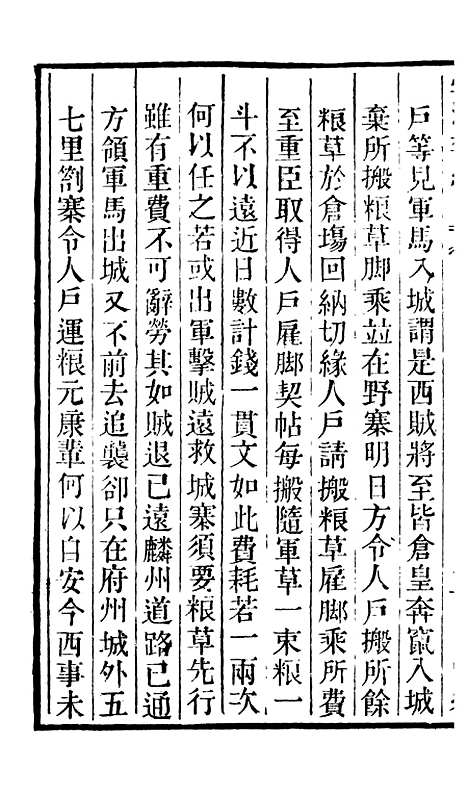 戶等見軍馬入城謂是西賊將至皆倉皇奔竄入城
棄所搬粮草脚乘並在野寨明日方令人戶搬所餘
粮草於倉塲回納切緣人戶請搬粮草雇脚乘所費
至重臣取得人戶雇脚契帖每搬隨軍草一束粮一
斗不以遠近日數計錢一貫文如此費耗若一兩次
何以任之若或出軍擊賊遠救城寨須要粮草先行
雖有重費不可辭勞其如賊退已遠麟州道路已通
方領軍馬出城又不前去追襲卻只在府州城外五
七里劄寨令人戶運粮元康輩何以自安今西事未